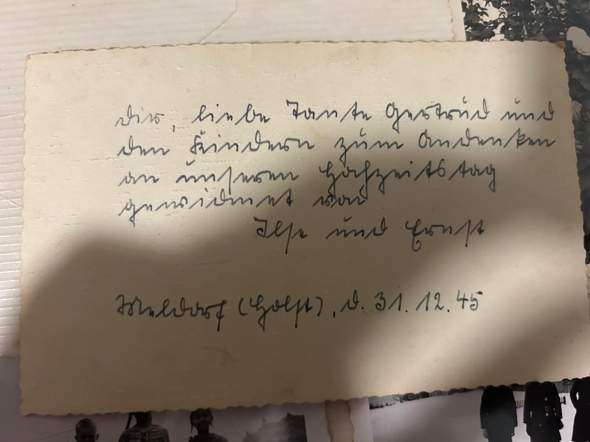 Dir, liebe Tante Gertrud und
den Kindern zum Andenken
an unseren Hochzeitstag
gewidmet von
Ilse und Ernst
Meldorf (Holst), d. 31. 12. 45